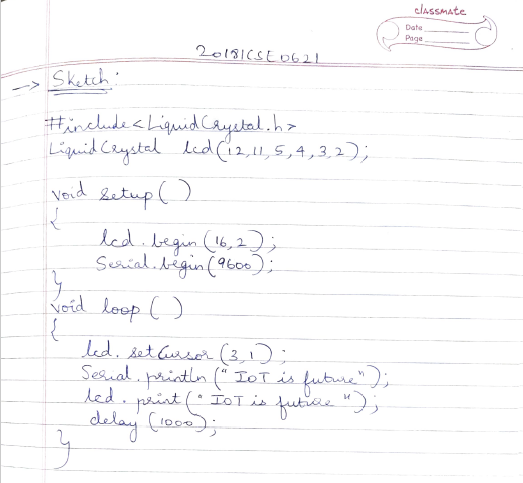 classmate
Date
Page
20181CSE0621
→ Sketch:
#include<LiquidCrystal.h>
LiquidCrystal lcd(12,11,5,4,3,2);
void setup( )
{
lcd.begin(16,2);
Serial.begin(9600);
}
void loop( )
{
lcd.setCursor(3,1);
Serial.println(" IoT is future");
lcd.print(" IoT is future ");
delay (1000);
}